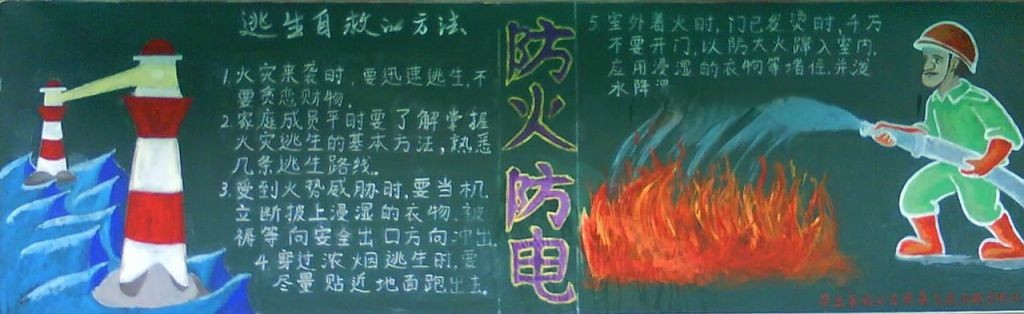 逃生自救的方法
1.火灾来袭时,要迅速逃生,不
要贪恋财物。
2.家庭成员平时要了解掌握
火灾逃生的基本方法,熟悉
几条逃生路线。
3.受到火势威胁时,要当机
立断披上浸湿的衣物、被
褥等向安全出口方向冲出
4.穿过浓烟逃生时,要
尽量贴近地面跑出去。
防火防电
5.室外着火时,门已发烫时,千万
不要开门,以防大火蹿入室内,
应用浸湿的衣物等堵住,并泼
水降温